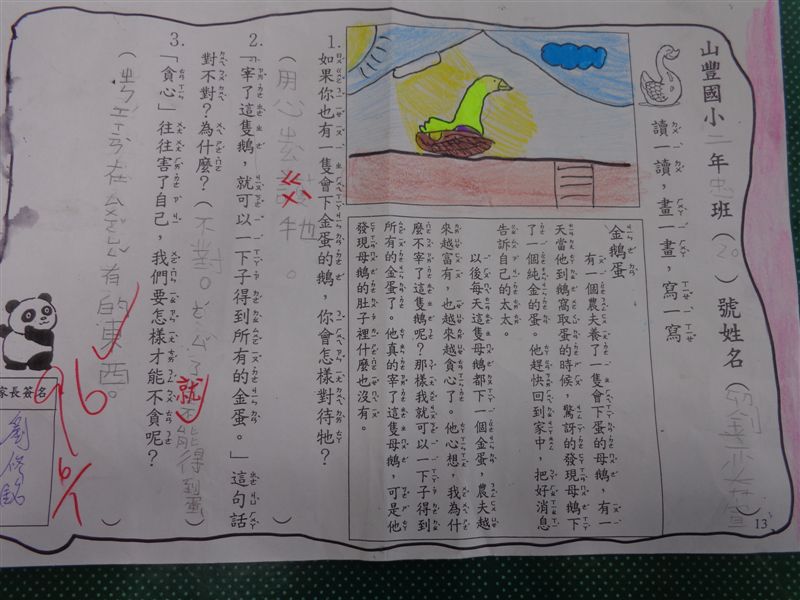 山豐國小二年忠班（20）號姓名（劉）
讀一讀，畫一畫，寫一寫
金鵝蛋
有一個農夫養了一隻會下蛋的母鵝，有一
天當他到鵝窩取蛋的時候，驚訝的發現母鵝下
了一個純金的蛋。他趕快回到家中，把好消息
告訴自己的太太。
以後每天這隻母鵝都下一個金蛋，農夫越
來越富有，也越來越貪心了。他心想，我為什
麼不宰了這隻鵝呢？那樣我就可以一下子得到
所有的金蛋了。他真的宰了這隻母鵝，可是他
發現母鵝的肚子裡什麼也沒有。
1.如果你也有一隻會下金蛋的鵝，你會怎樣對待牠？
（用心去養牠。）
2.「宰了這隻鵝，就可以一下子得到所有的金蛋。」這句話
對不對？為什麼？（不對。ㄕㄚ了就不能得到蛋）
3.「貪心」往往害了自己，我們要怎樣才能不貪呢？
（ㄓㄣㄒㄧˊ現在ㄙㄨㄛˇ有的東西。）
96
6/1
家長簽名
劉
13